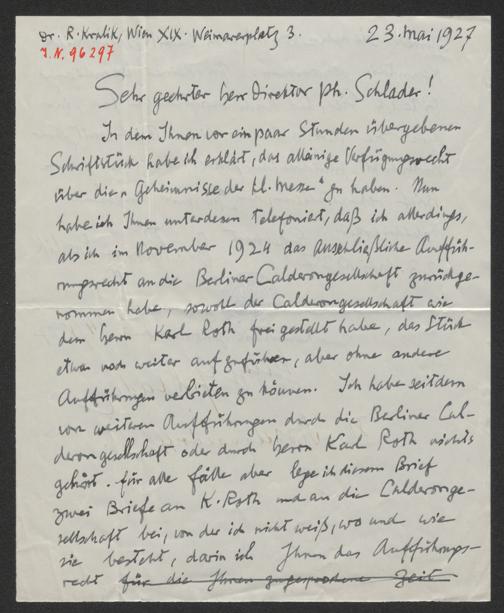 Dr. R. Kralik, Wien XIX. Weimarerplatz 3. 23. Mai 1927
I.N. 96297
Sehr geehrter Herr Direktor Ph. Schlader!
In dem Ihnen vor ein paar Stunden übergebenen
Schriftstück habe ich erklärt, das alleinige Verfügungsrecht
über die „Geheimnisse der hl. Messe" zu haben. Nun
habe ich Ihnen unterdessen telefoniert, daß ich allerdings,
als ich im November 1924 das ausschließliche Auffüh-
rungsrecht an die Berliner Calderongesellschaft zurückge-
nommen habe, sowohl der Calderongesellschaft wie
dem Herrn Karl Roth freigestellt habe, das Stück
etwa noch weiter aufzuführen, aber ohne andere
Aufführungen verbieten zu können. Ich habe seitdem
von weiteren Aufführungen durch die Berliner Cal-
derongesellschaft oder durch Herrn Karl Roth nichts
gehört. Für alle Fälle aber lege ich diesem Brief
zwei Briefe an K. Roth und an die Calderonge-
sellschaft bei, von der ich nicht weiß, wo und wie
sie besteht, darin ich Ihnen das Aufführungs-
recht für die Ihnen zugesprochene Zeit